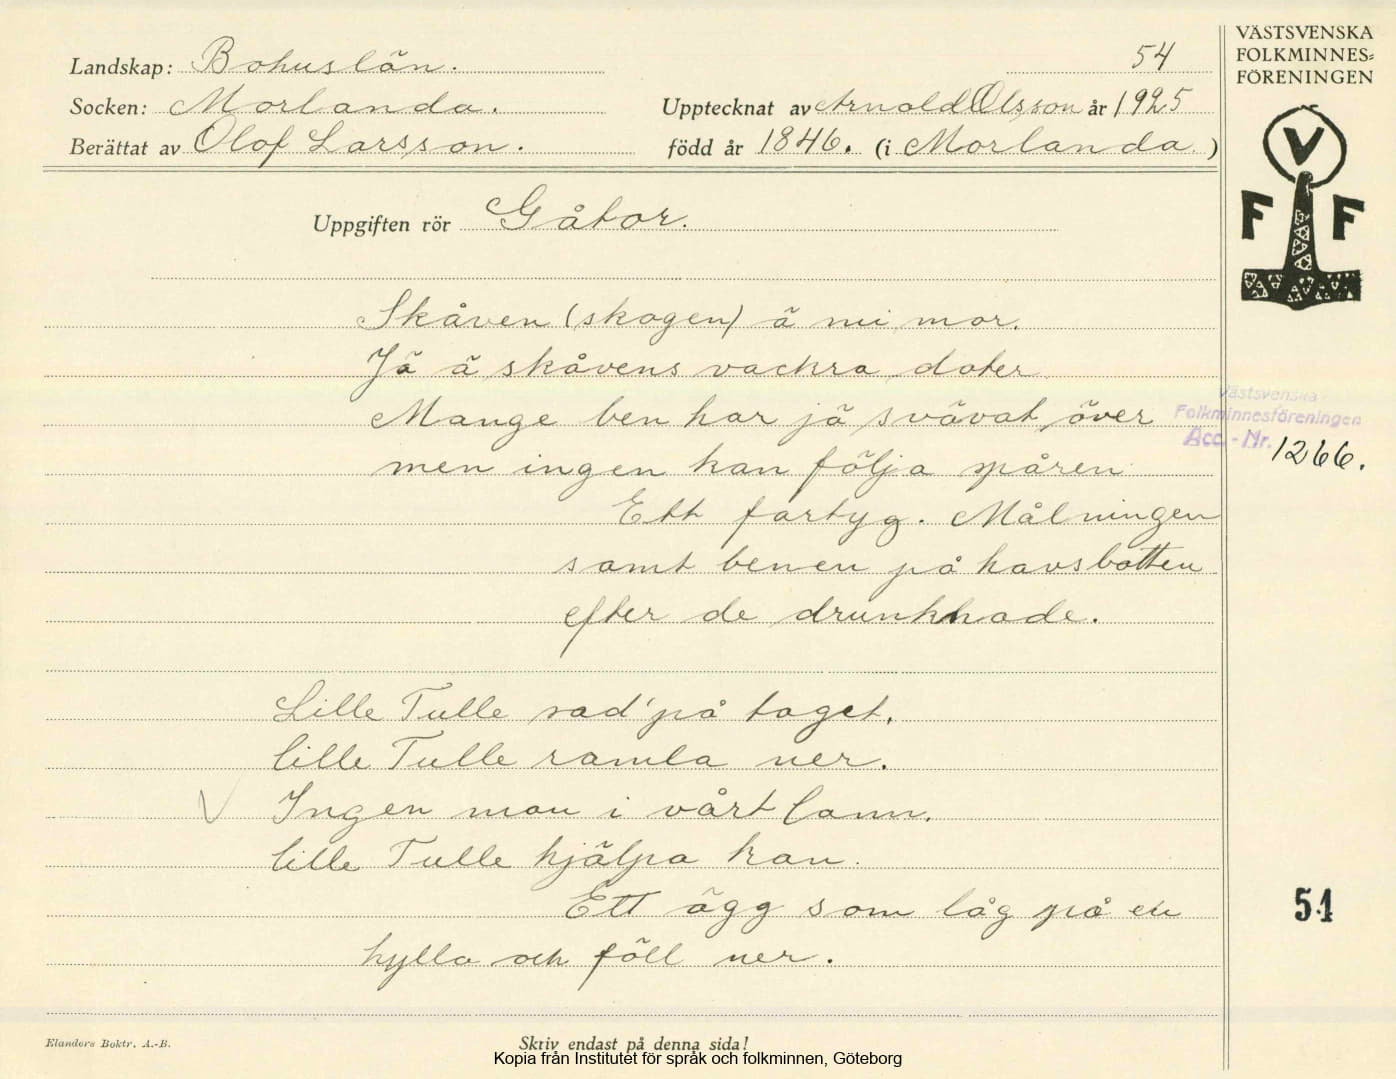 Landskap: Bohuslän.
54
Socken: Morlanda.
Upptecknat av Arnold Olsson år 1925
Berättat av Olof Larsson.
född år 1846. (i Morlanda)
Uppgiften rör Gåtor.
Skåven (skogen) ä mi mor.
Jä ä skåvens vackra doter
Mange ben har jä svävat över
men ingen kan följa spåren
Ett fartyg. Målningen
samt benen på havsbotten
efter de drunknade.
Lille Tulle rad' på taget.
lille Tulle ramla ner.
Ingen man i vårt lann.
lille Tulle hjälpa kan.
Ett ägg som låg på en
hylla och föll ner.
Elanders Boktr. A.-B.
Skriv endast på denna sida!
Kopia från Institutet för språk och folkminnen, Göteborg
VÄSTSVENSKA
FOLKMINNES=
FÖRENINGEN
V
F F
Västsvenska
Folkminnesföreningen
Acc.-Nr. 1266.
51